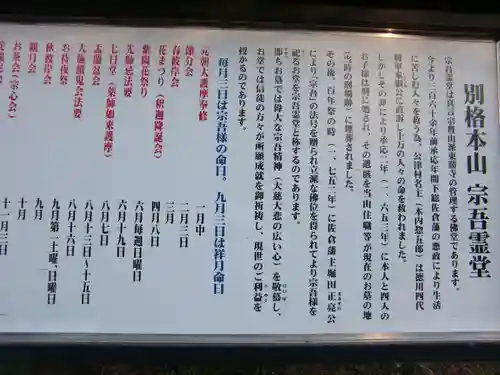 別格本山 宗吾霊堂
宗吾霊堂は真言宗豊山派東勝寺の管理する佛堂であります。
今より三百六十余年前承応年間下総佐倉藩の悪政により生活
に苦しむ人々を救う為、公津村名主(木内惣五郎)は徳川四代
将軍家綱公に直訴し十万の人々の命を救われました。
しかしその罪により承応二年(一、六五三年)に本人と四人の
お子様は刑に処され、その遺骸を当山住職等が現在のお墓の地
(当時の刑場跡)に埋葬されました。
その後、百年祭の時(一、七五二年)に佐倉藩主堀田正亮公
により「宗吾」の法号を贈られ立派な佛位を得られてより宗吾様を
祀るお堂を宗吾霊堂と称するのであります。
即ちお墓では偉大な宗吾精神(大慈大悲の広い心)を敬慕し、
お堂では信徒の方々が所願成就を御祈祷し、現世のご利益を
授かるのであります。
毎月三日は宗吾様の命日。九月三日は祥月命日
元朝大護摩奉修 一月中
節分会 二月三日
春彼岸会 三月
花まつり(釈迦降誕会) 四月八日
紫陽花祭り 六月毎週日曜日
先師忌法要 六月十九日
七日堂(薬師如来護摩) 八月七日
盂蘭盆会 八月十三日〜十五日
大施餓鬼会法要 八月十六日
お待夜祭 九月第一土曜、日曜日
秋彼岸会 九月
観月会 十月
お茶会(宗心会) 十一月三日